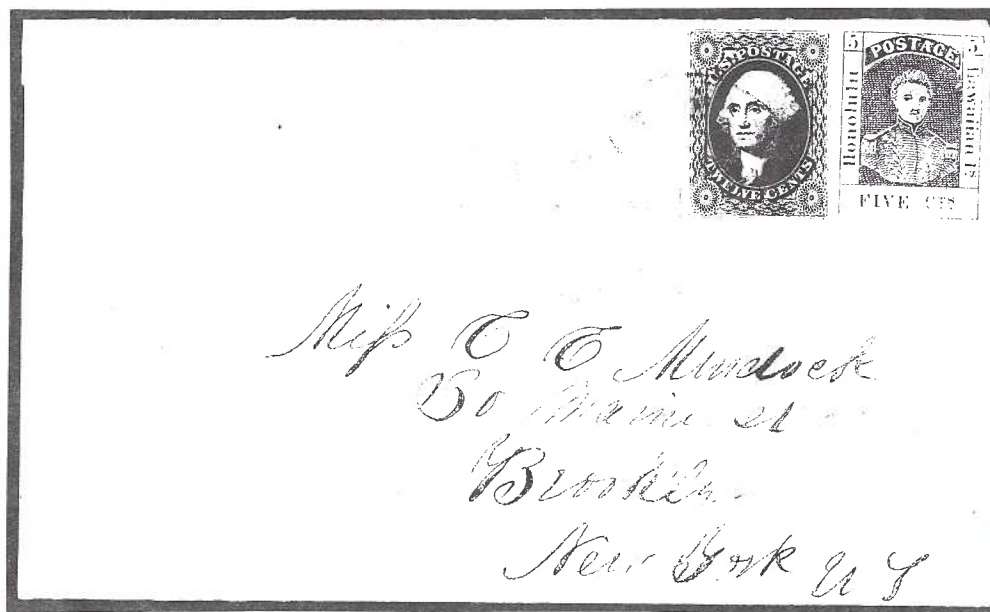 U.S. POSTAGE
TWELVE CENTS
5 POSTAGE 5
Honolulu
Hawaiian Is
FIVE CTS
Miss C C Murdock
Maine st
Brooklin
New York U S